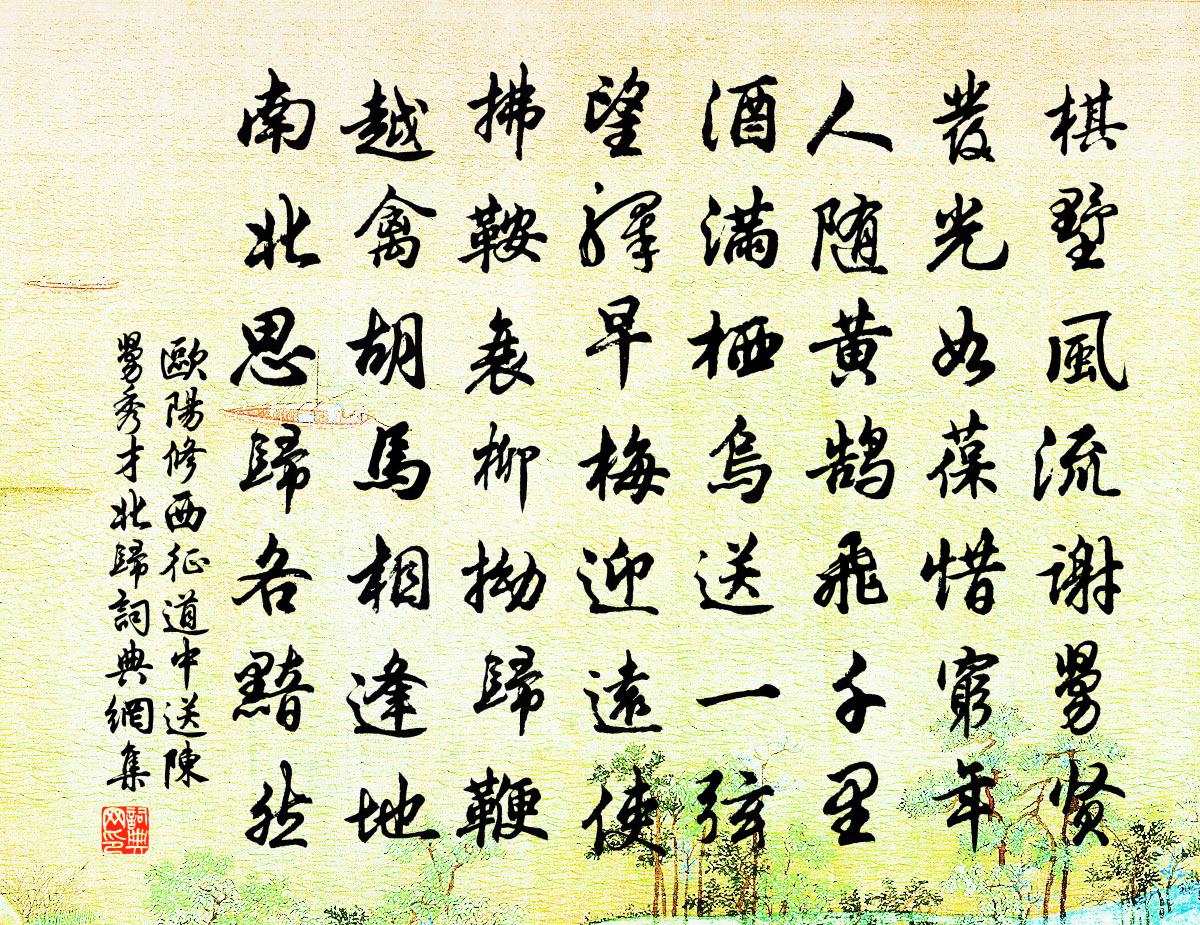 棋墅風流謝舅賢
發光如葆惜窮年
人随黄鵠飛千里
酒滿栖烏送一弦
望驛早梅迎遠使
拂鞍衰柳拗歸鞭
越禽胡馬相逢地
南北思歸各黯然
歐陽修西征道中送陳
舅秀才北歸詞典網集
詞典网印